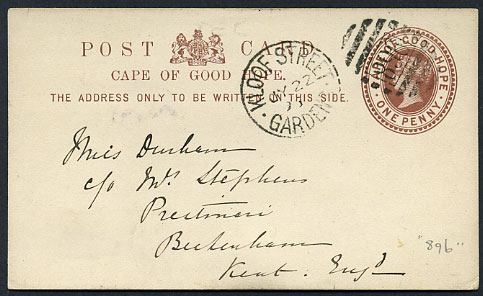 POST CARD.
CAPE OF GOOD HOPE.
THE ADDRESS ONLY TO BE WRITTEN ON THIS SIDE.
KLOOF STREET
22
GARDENS
CAPE OF GOOD HOPE
ONE PENNY
Miss Durham
c/o Mrs Stephens
Beckenham
Kent. Engd
"896"